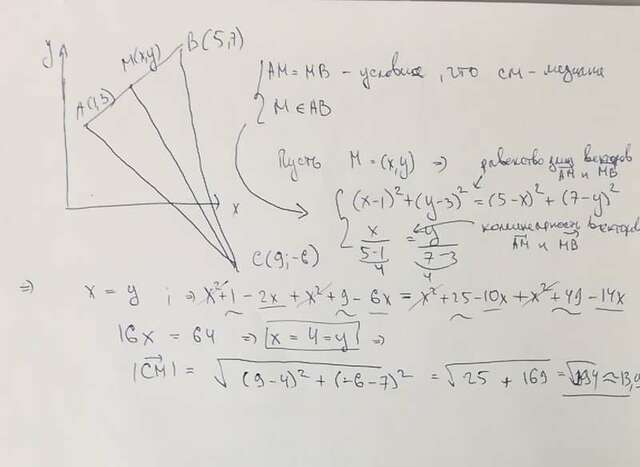 y
M(x,y)
B(5,7)
A(1,3)
x
C(9;-6)
AM = MB - условие, что CM - медиана
M ∈ AB
Пусть M = (x,y) ⇒ равенство длин векторов
AM и MB
(x-1)² + (y-3)² = (5-x)² + (7-y)²
x/(5-1) = y/(7-3)
4 4
коллинеарность векторов
AM и MB
⇒ x = y ; ⇒ x² + 1 - 2x + x² + 9 - 6x = x² + 25 - 10x + x² + 49 - 14x
16x = 64 ⇒ x = 4 = y ⇒
|CM| = √((9-4)² + (-6-7)²) = √(25 + 169) = √194 ≈ 13,9